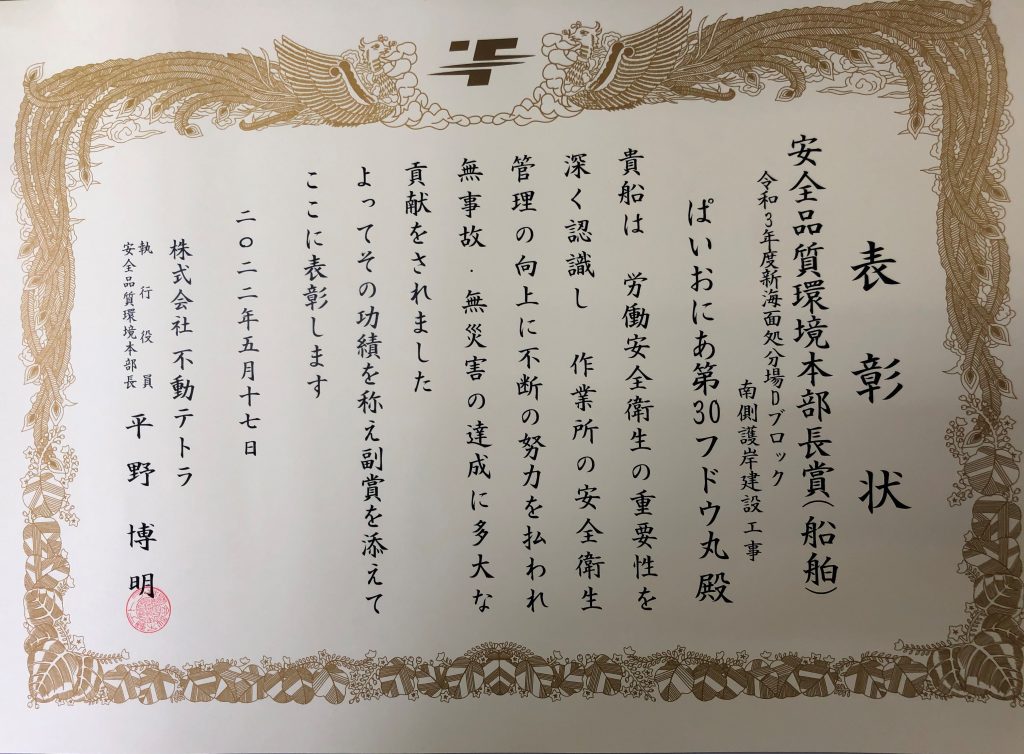 表彰状
安全品質環境本部長賞(船舶)
令和3年度新海面処分場Dブロック
南側護岸建設工事
ぱいおにあ第30フドウ丸殿
貴船は 労働安全衛生の重要性を
深く認識し 作業所の安全衛生
管理の向上に不断の努力を払われ
無事故・無災害の達成に多大な
貢献をされました
よってその功績を称え副賞を添えて
ここに表彰します
二〇二二年五月十七日
株式会社不動テトラ
執行役員
安全品質環境本部長
平野博明